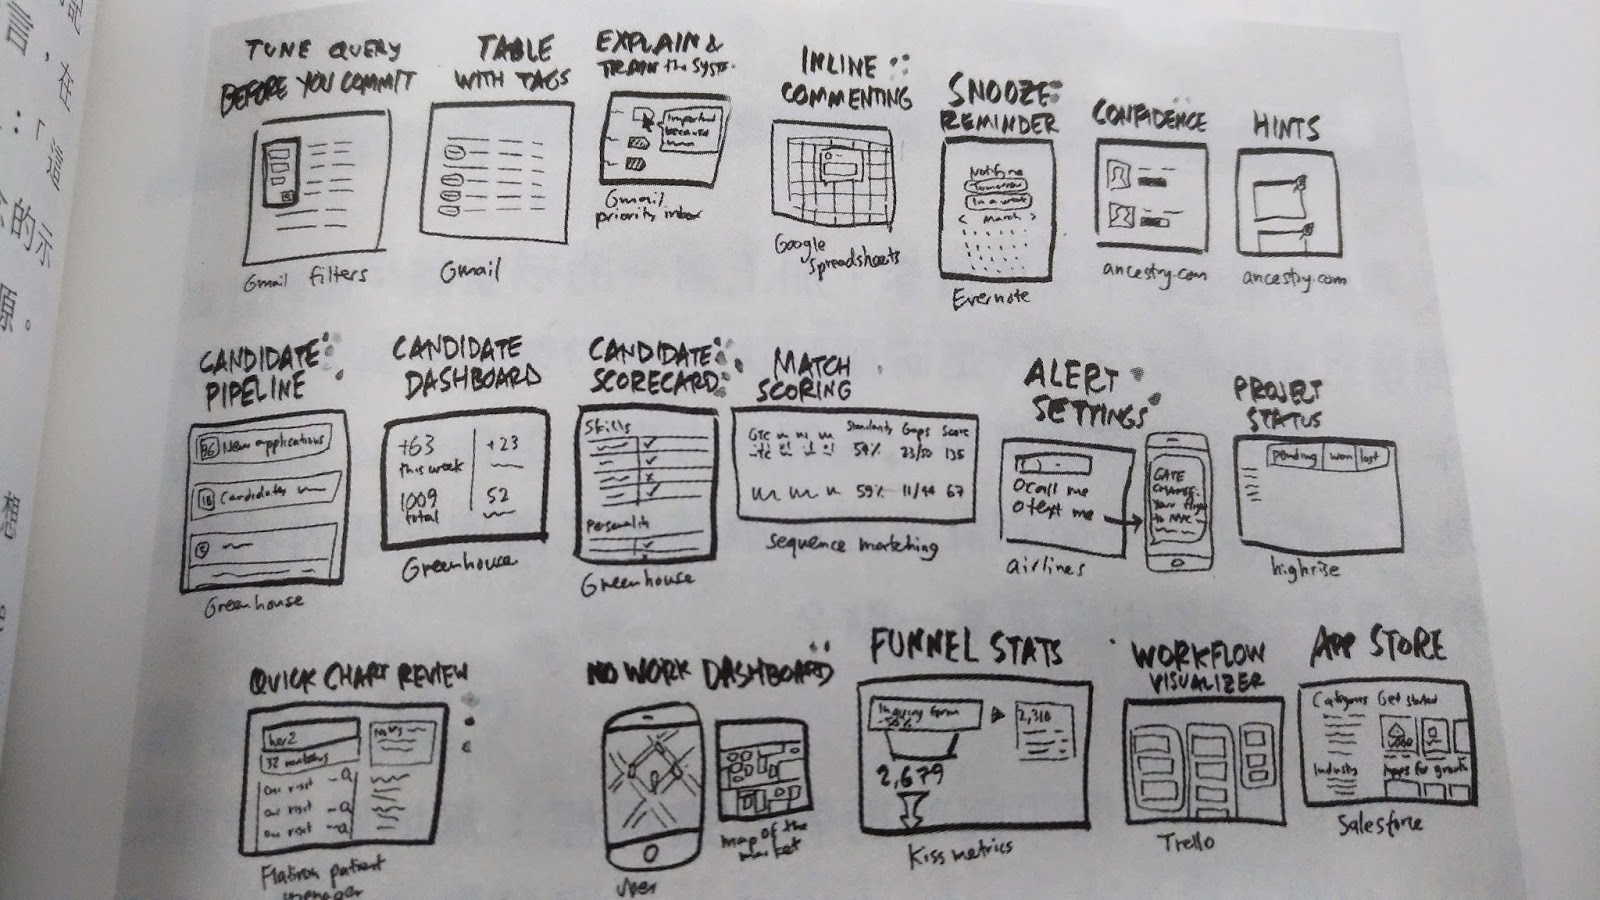 TUNE QUERY
BEFORE YOU COMMIT
Gmail filters
TABLE
WITH TAGS
Gmail
EXPLAIN &
TRAIN the SYSTE
Important
because
Gmail
priority inbox
INLINE
COMMENTING
Google
Spreadsheets
SNOOZE
REMINDER
Notify me
tomorrow
in a week
< March >
Evernote
CONFIDENCE
ancestry.com
HINTS
ancestry.com
CANDIDATE
PIPELINE
New applications
Candidates
Greenhouse
CANDIDATE
DASHBOARD
+63 +23
this week
1009 52
total
Greenhouse
CANDIDATE
SCORECARD
Skills
Personality
Greenhouse
MATCH
SCORING
Standarity Gaps Score
59% 23/50 135
59% 11/44 67
sequence matching
ALERT
SETTINGS
call me
text me
GATE
CHANGE:
your flight
to NYC
airlines
PROJECT
STATUS
pending won lost
highrise
QUICK CHART REVIEW
her2
Flatiron patient
manager
NO WORK DASHBOARD
Uber
map of the
market
FUNNEL STATS
2,310
2,679
Kiss metrics
WORKFLOW
VISUALIZER
Trello
APP STORE
Categories Get started
Industry Apps for growth
Salesforce
言,在
:「這
的示
源。
穗